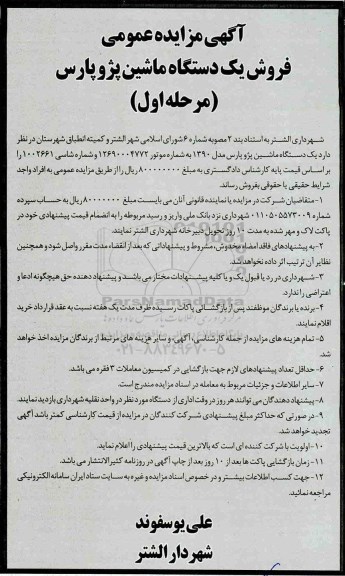 آگهی مزایده عمومی
فروش یک دستگاه ماشین پژو پارس
(مرحله اول)
شـهرداری الشتـر به استناد بند ۲ مصوبه شماره ۶ شورای اسلامی شهر الشتر و کمیته انطباق شهرستان در نظر
دارد یک دستگاه ماشین پژو پارس مدل ۱۳۹۰ به شماره موتور ۱۲۶۹۰۰۰۴۷۷۲ و شماره شاسی ۱۰۰۲۶۶۱ را
بر اساس قیمت پایه کارشناس دادگستری به مبلغ ۸۰۰۰۰۰۰۰۰۰ ریال را از طریق مزایده عمومی به افراد واجد
شرایط حقیقی یا حقوقی بفروش رساند.
۱- متقاضیان شرکت در مزایده یا نماینده قانونی آنان می بایست مبلغ ۸۰۰۰۰۰۰۰ ریال به حساب سپرده
شماره ۰۱۱۰۵۰۵۵۷۳۰۰۹ شهرداری نزد بانک ملی واریز و رسید مربوطه را به انضمام قیمت پیشنهادی خود در
پاکت لاک و مهر شده به مدت ۱۰ روز تحویل دبیرخانه شهرداری الشتر نمایند.
۲- به پیشنهادهای فاقد امضاء مخدوش، مشروط و پیشنهاداتی که بعد از انقضاء مدت مقرر واصل شود و همچنین
نظایر آن ترتیب اثر داده نخواهد شد.
۳- شهرداری در رد یا قبول یک و یا کلیه پیشنهادات مختار می باشد و پیشنهاد دهنده حق هیچگونه ادعا و
اعتراضی را ندارد.
۴- برنده یا برندگان موظفند پس از بازگشائی پاکات رسیده ظرف مدت یک هفته نسبت به عقد قرارداد خرید
اقدام نمایند.
۵- تمام هزینه های مزایده از جمله کارشناسی، آگهی، و سایر هزینه های مرتبط از برندگان مزایده اخذ خواهد
شد.
۶- حداقل تعداد پیشنهادهای لازم جهت بازگشایی در کمیسیون معاملات ۲ فقره می باشد.
۷- سایر اطلاعات و جزئیات مربوط به معامله در اسناد مزایده مندرج است.
۸- پیشنهاد دهندگان می توانند هر روز در وقت اداری از دستگاه مورد نظر در واحد نقلیه شهرداری بازدید نمایند.
۹- در صورتی که حداکثر مبلغ پیشنهادی شرکت کنندگان در مزایده از قیمت کارشناسی کمتر باشد آگهی
تجدید خواهد شد.
۱۰- اولویت با شرکت کننده ای است که بالاترین قیمت پیشنهادی را اعلام نماید.
۱۱- زمان بازگشایی پاکت ها بعد از ۱۰ روز بعد از چاپ آگهی در روزنامه کثیرالانتشار می باشد.
۱۲- جهت کسب اطلاعات بیشتر و در خصوص اسناد مزایده و غیره به سایت ستاد ایران سامانه الکترونیکی
مراجعه نمائید.
علی یوسفوند
شهردار الشتر
ParsNamadData
۰۲۱-۸۸۳۴۹۶۷۰-۵